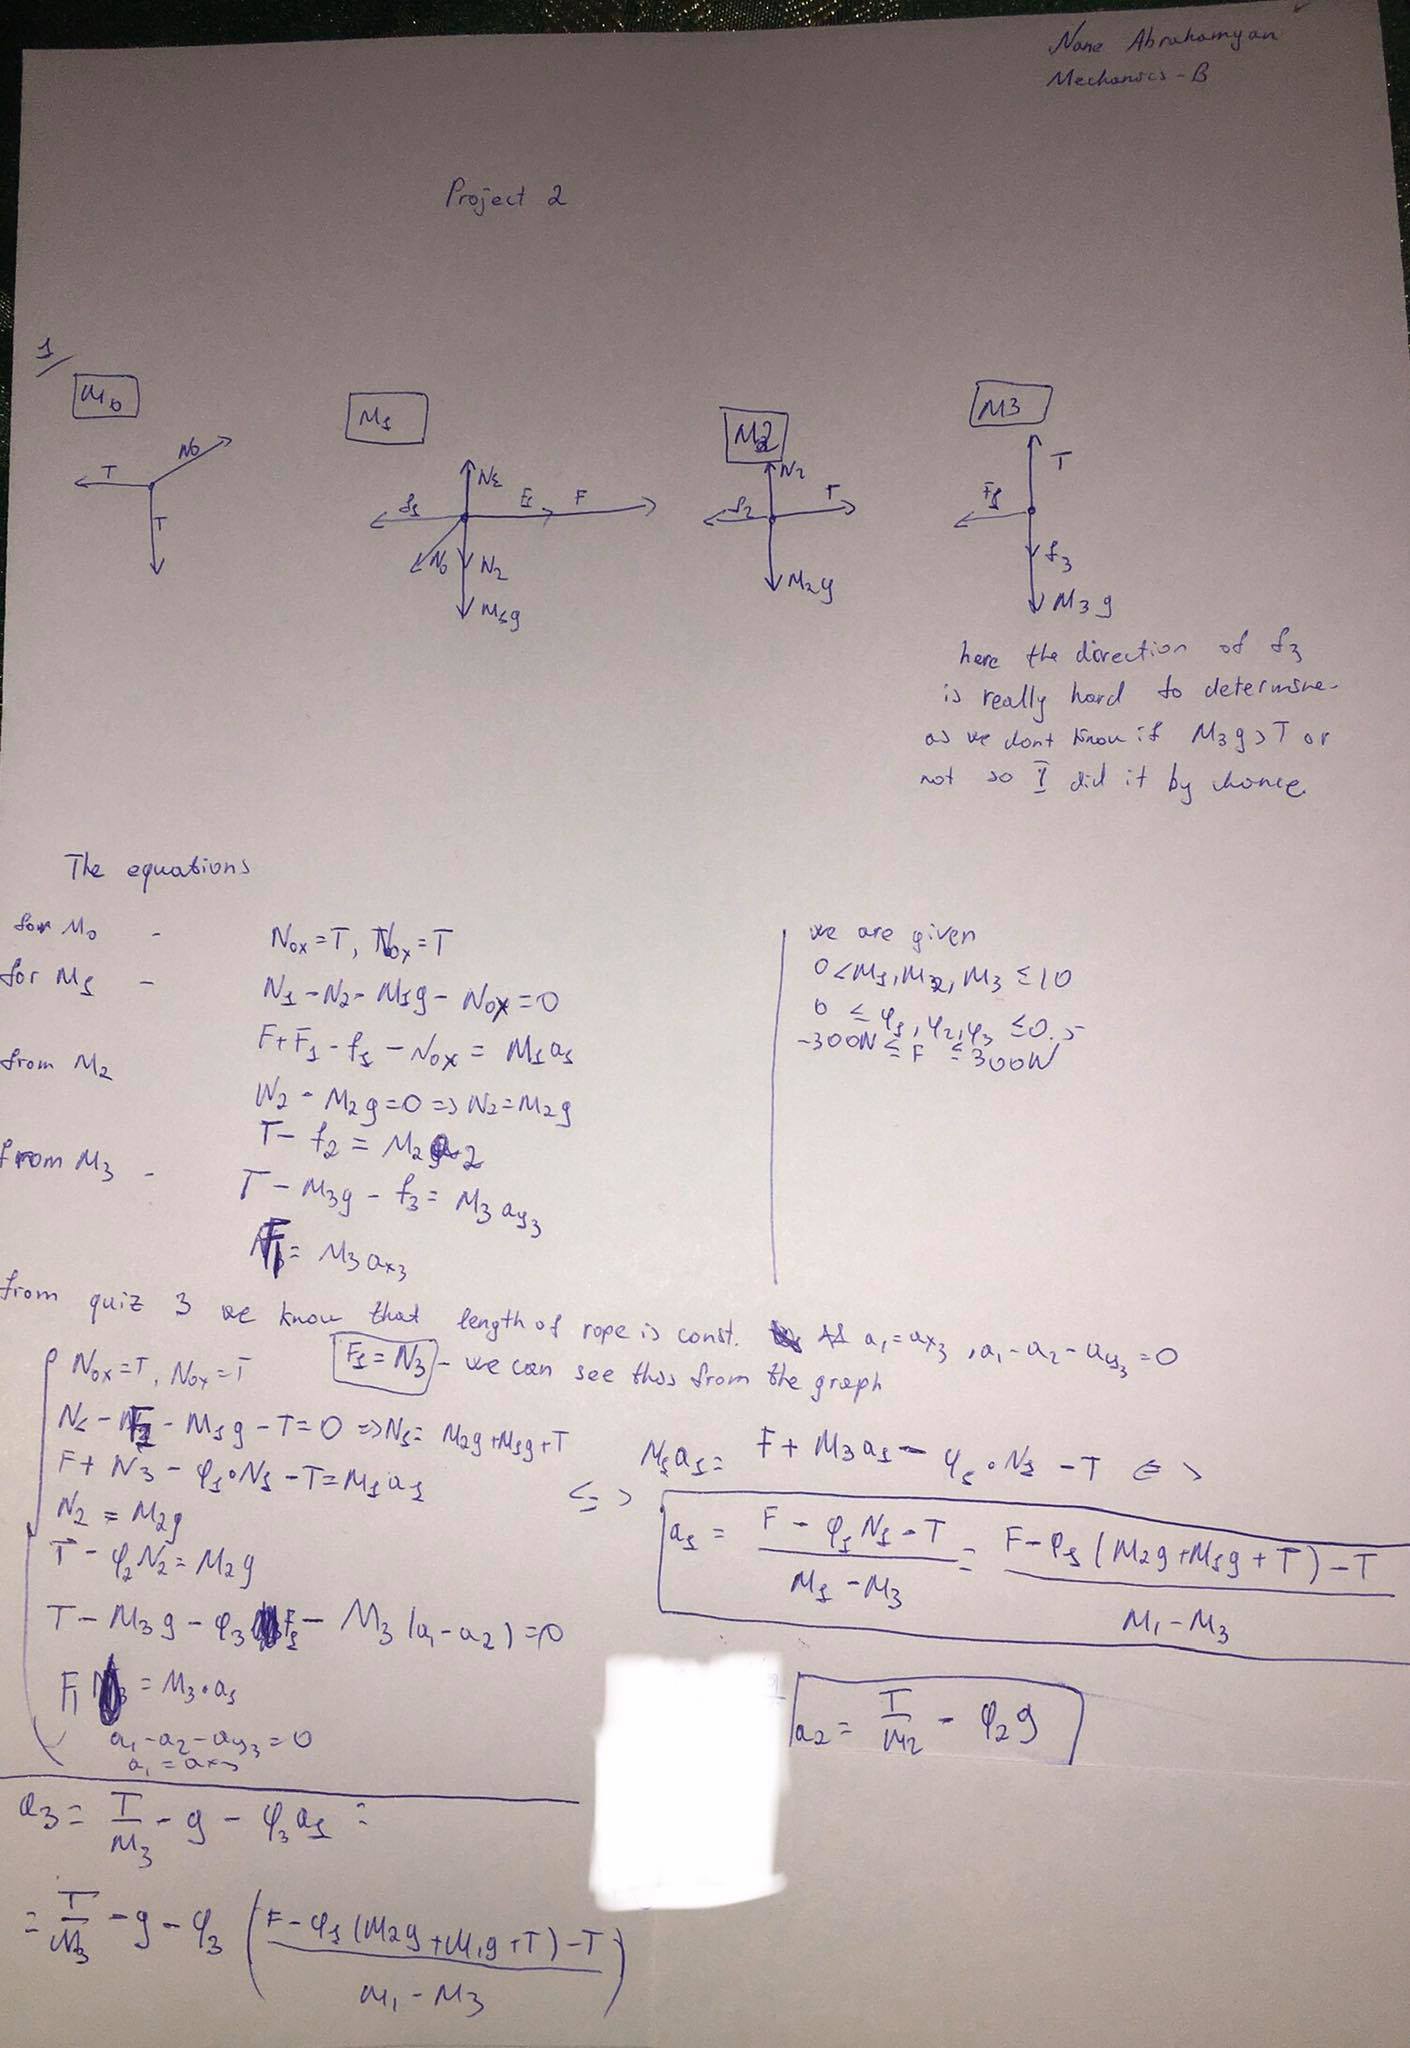 Nane Abrahamyan
Mechanics-B
Project 2
1/
M0
M1
M2
M3
N0
T
T
N1
f1
F1
F
N0
N2
M1g
N2
f2
T
M2g
T
F1
f3
M3g
here the direction of f3
is really hard to determine
as we dont know if M3g>T or
not so I did it by chance
The equations
for M0 - Nox=T, Nox=T
for M1 - N1-N2-M1g-Nox=0
F+F1-f1-Nox=M1a1
from M2
N2-M2g=0=>N2=M2g
T-f2=M2a2
from M3 -
T-M3g-f3=M3ay3
F1=M3ax3
we are given
0<M1,M2,M3≤10
0≤φ1,φ2,φ3≤0.5
-300N≤F≤300N
from quiz 3 we know that length of rope is const. As a1=ax3, a1-a2-ay3=0
Nox=T, Noy=T
F1=N3 - we can see this from the graph
N1-F2-M1g-T=0=>N1=M2g+M1g+T
F+N3-φ1•N1-T=M1a1
N2=M2g
T-φ2N2=M2g
T-M3g-φ3F1-M3(a1-a2)=0
F1=M3•a1
a1-a2-ay3=0
a1=ax3
<=>
M1a1=F+M3a1-φ1•N1-T <=>
a1=(F-φ1N1-T)/(M1-M3)=(F-φ1(M2g+M1g+T)-T)/(M1-M3)
a2=T/M2-φ2g
a3=T/M3-g-φ3a1=
=T/M3-g-φ3((F-φ1(M2g+M1g+T)-T)/(M1-M3))